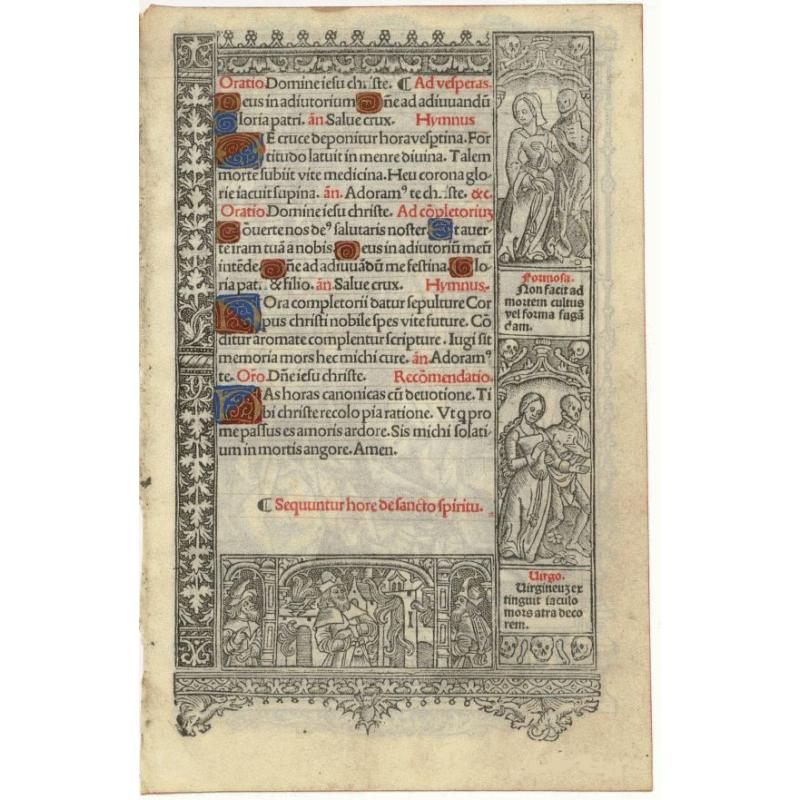 Oratio. Domine iesu ch. ste. ¶ Ad vesperas.
Deus in adiutorium Dñe ad adiuuandũ
Gloria patri. añ. Salue crux. Hymnus
DE cruce deponitur hora vesptina. For
titudo latuit in mente diuina. Talem
morte subiit vite medicina. Heu corona glo
rie iacuit supina. añ. Adoramꝰ te ch. ste. &c.
Oratio. Domine iesu christe. Ad cõpletoriuꝫ
Cõuerte nos deꝰ salutaris noster Et auer
te iram tuã a nobis. Deus in adiutoriũ meũ
intẽde. Dñe ad adiuuãdũ me festina. Glo
ria pat. & filio. añ. Salue crux. Hymnus.
HOra completorii datur sepulture Cor
pus christi nobile spes vite future. Cõ
ditur aromate complentur scripture. Iugi sit
memoria mors hec michi cure. añ. Adoramꝰ
te. Orõ. Dñe iesu christe. Recõmendatio.
HAs horas canonicas cũ deuotione. Ti
bi christe recolo pia ratione. Vtq pro
me passus es amoris ardore. Sis michi solati
um in mortis angore. Amen.
¶ Sequuntur hore de sancto spiritu.
Formosa.
Non facit ad
mortem cultus
vel forma fugã
dam.
Uirgo.
Uirgineuꝫ ex
tinguit iaculo
mors atra deco
rem.